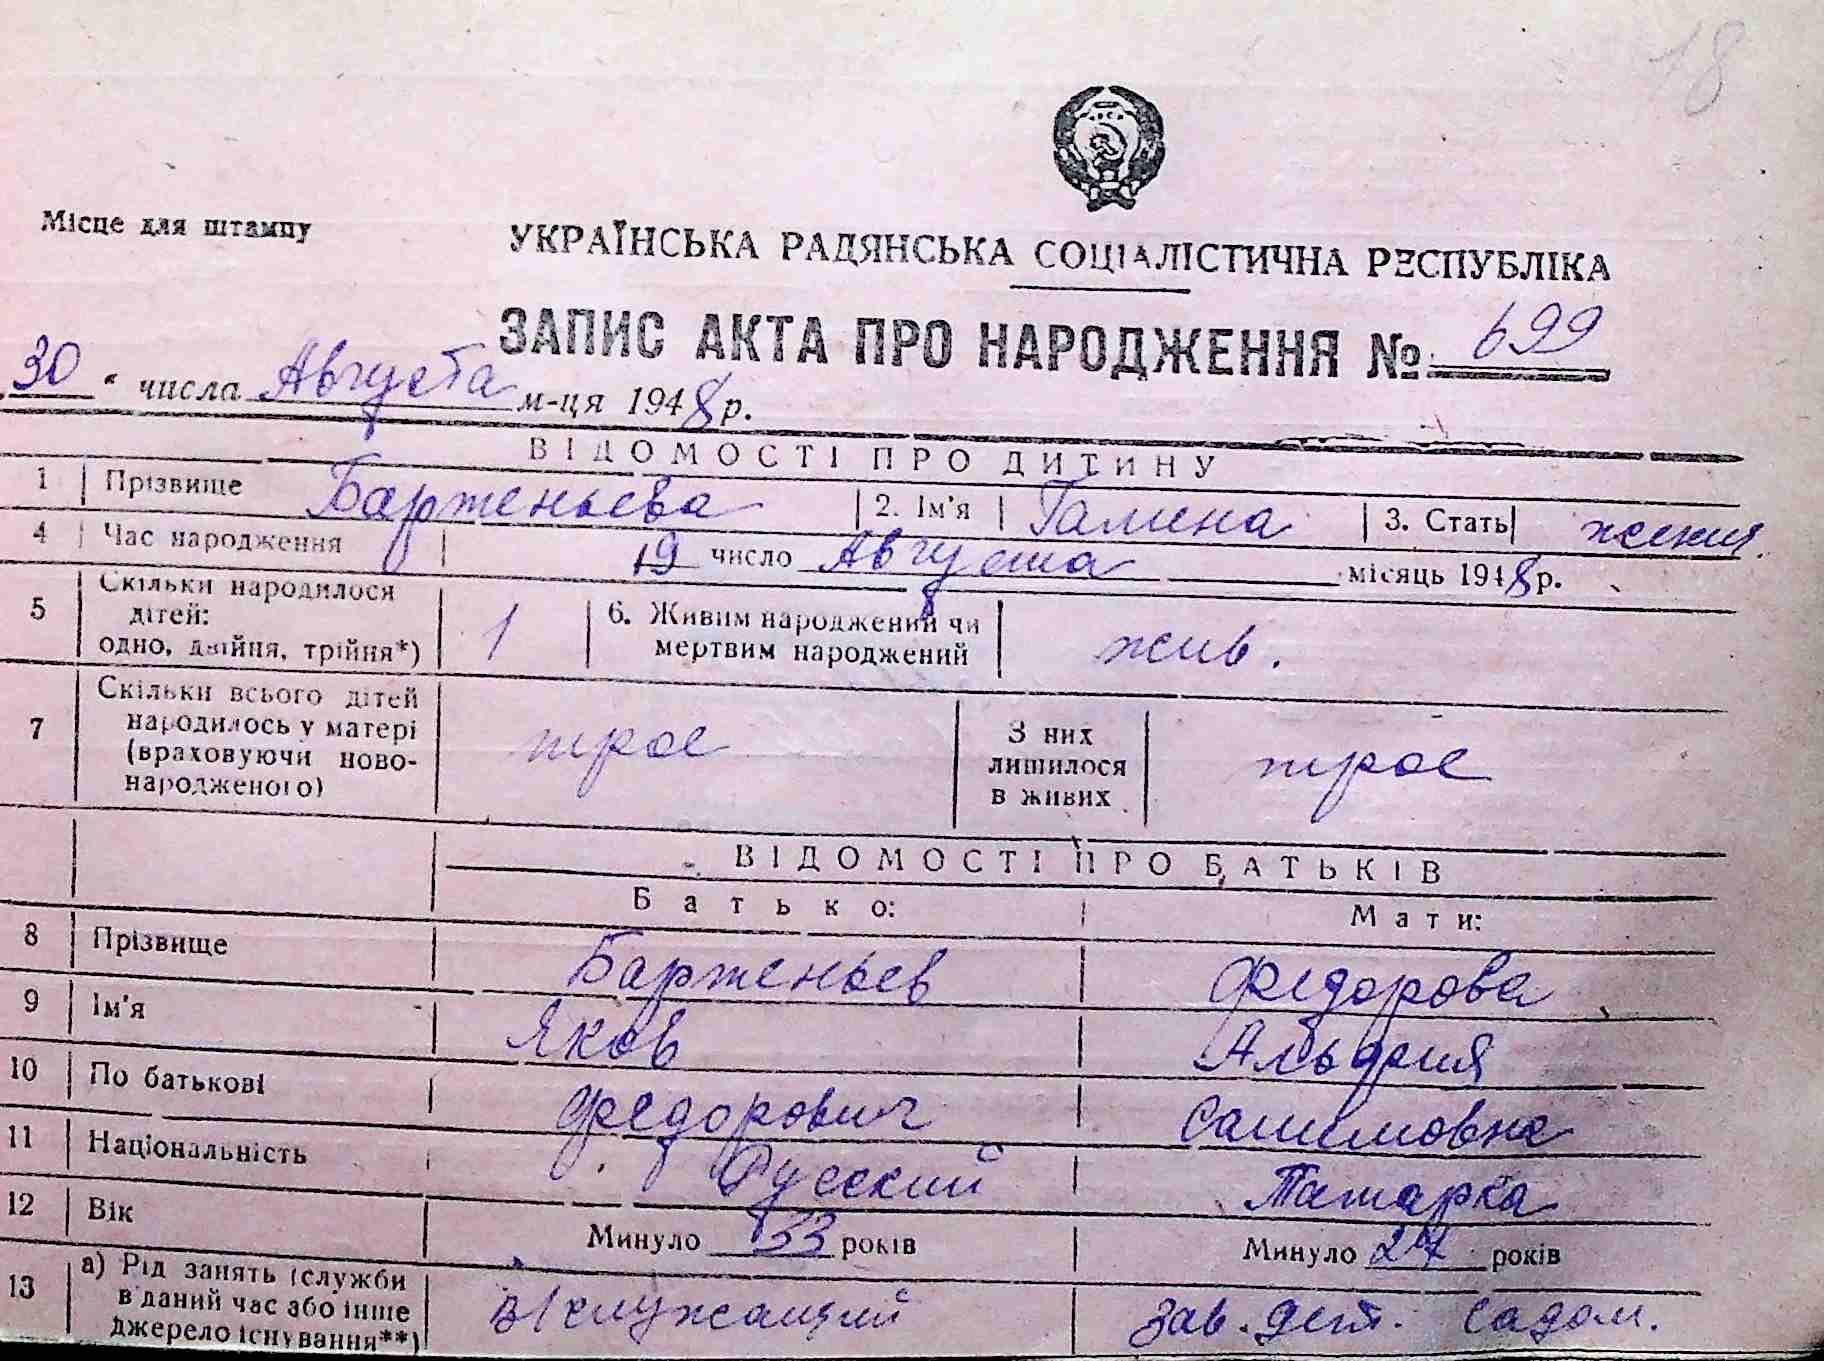 18
Місце для штампу
УКРАЇНСЬКА РАДЯНСЬКА СОЦІАЛІСТИЧНА РЕСПУБЛІКА
ЗАПИС АКТА ПРО НАРОДЖЕННЯ № 699
30 " числа Августа м-ця 1948 р.
ВІДОМОСТІ ПРО ДИТИНУ
1 Прізвище Барженьева 2. Ім'я Галина 3. Стать женск.
4 Час народження 19 число Августа місяць 1948 р.
5 Скільки народилося дітей: одно, двійня, трійня*) 1 6. Живим народжений чи мертвим народжений жив.
7 Скільки всього дітей народилось у матері (враховуючи новонародженого) трое З них лишилося в живих трое
ВІДОМОСТІ ПРО БАТЬКІВ
Батько: Мати:
8 Прізвище Барженьев Федорова
9 Ім'я Яков Альфия
10 По батькові Федорович Салимовна
11 Національність Русский Татарка
12 Вік Минуло 33 років Минуло 27 років
13 а) Рід занять (служби в даний час або інше джерело існування**) в/служащий зав. дет. садом.